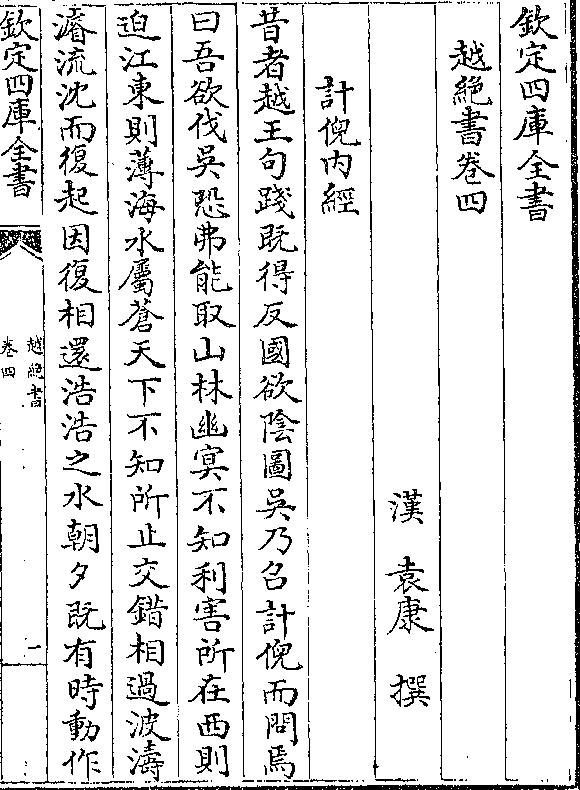 欽定四庫全書
越絕書卷四
漢 袁康 撰
計倪內經
昔者越王句踐既得反國欲陰圖吳乃召計倪而問焉
曰吾欲伐吳恐弗能取山林幽冥不知利害所在西則
迫江東則薄海水屬蒼天下不知所止交錯相過波濤
濬流沈而復起因復相還浩浩之水朝夕既有時動作
欽定四庫全書
越絕書
卷四
一